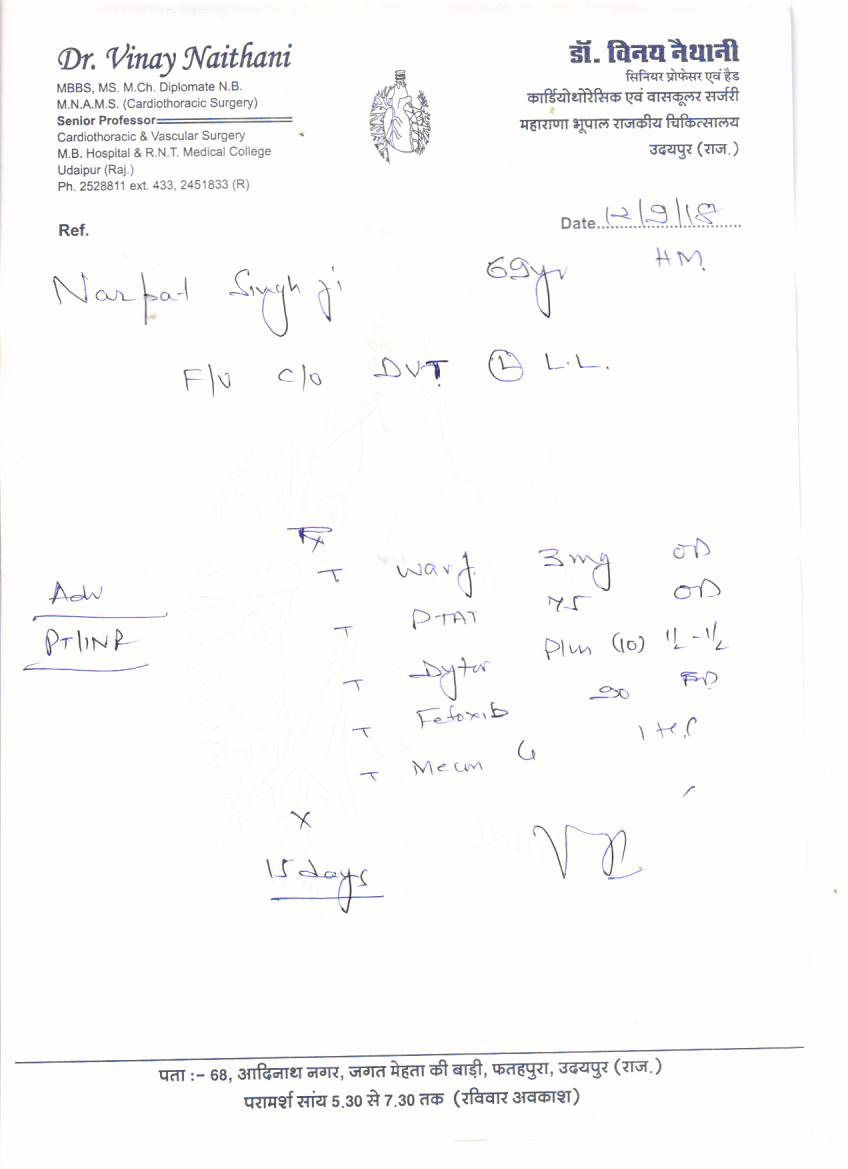 Dr. Vinay Naithani
MBBS, MS. M.Ch. Diplomate N.B.
M.N.A.M.S. (Cardiothoracic Surgery)
Senior Professor
Cardiothoracic & Vascular Surgery
M.B. Hospital & R.N.T. Medical College
Udaipur (Raj.)
Ph. 2528811 ext. 433, 2451833 (R)
डॉ. विनय नैथानी
सिनियर प्रोफेसर एवं हैड
कार्डियोथोरेसिक एवं वासकूलर सर्जरी
महाराणा भूपाल राजकीय चिकित्सालय
उदयपुर (राज.)
Ref.
Date 12/9/18
Narpat Singh ji 69yr HM
F/U C/O DVT (L) L.L.
Rx
Adv
PT/INR
T Warf 3mg OD
T 75 OD
T Dytor Plus (10) 1/2 - 1/2
T 90
T 1 H.S
x
15 days
पता :– 68, आदिनाथ नगर, जगत मेहता की बाड़ी, फतहपुरा, उदयपुर (राज.)
परामर्श सांय 5.30 से 7.30 तक (रविवार अवकाश)